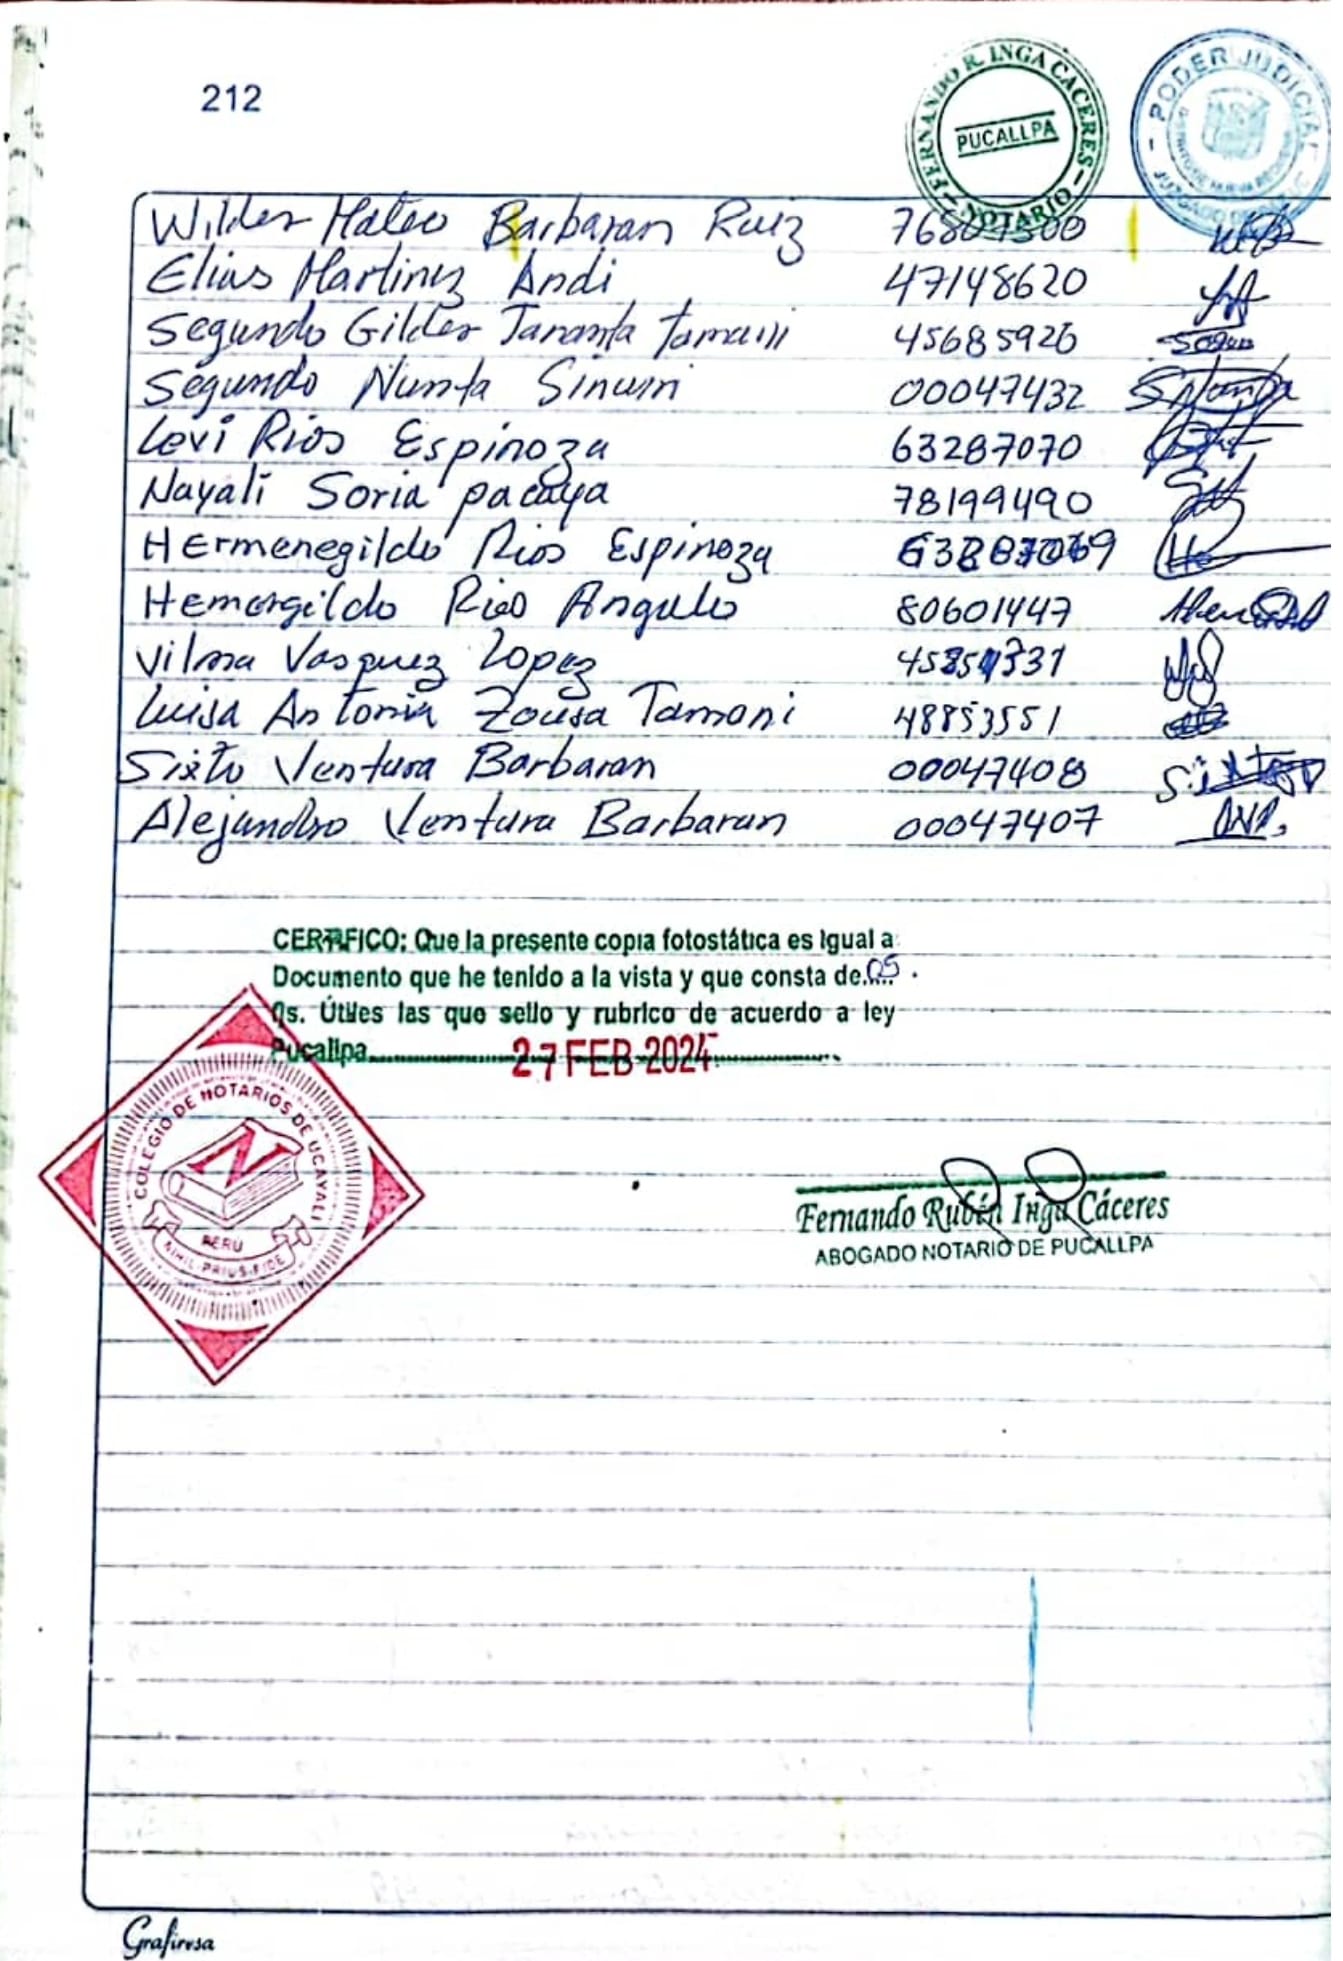 212
FERNANDO R. INGA CACERES
PUCALLPA
NOTARIO
PODER JUDICIAL
JUZGADO DE
Wilder Mateo Barbaran Ruiz 76807300
Elias Martinez Andi 47148620
Segundo Gilder Tananta Tamani 45685926
Segundo Nunta Sinuiri 00047432
Levi Rios Espinoza 63287070
Nayali Soria pacaya 78199490
HErmenegildo Rios Espinoza
Hemergildo Rios Angulo 80601447
Vilma Vasquez Lopez
Luisa Antonia Zousa Tamani 48853551
Sixto Ventura Barbaran 00047408
Alejandro Ventura Barbaran 00047407
CERTIFICO: Que la presente copia fotostática es Igual a
Documento que he tenido a la vista y que consta de..05..
fs. Útiles las que sello y rubrico de acuerdo a ley
Pucallpa........27 FEB 2024........
COLEGIO DE NOTARIOS DE UCAYALI
N
PERÚ
NIHIL PRIUS FIDE
Fernando Rubén Inga Cáceres
ABOGADO NOTARIO DE PUCALLPA
Grafirosa